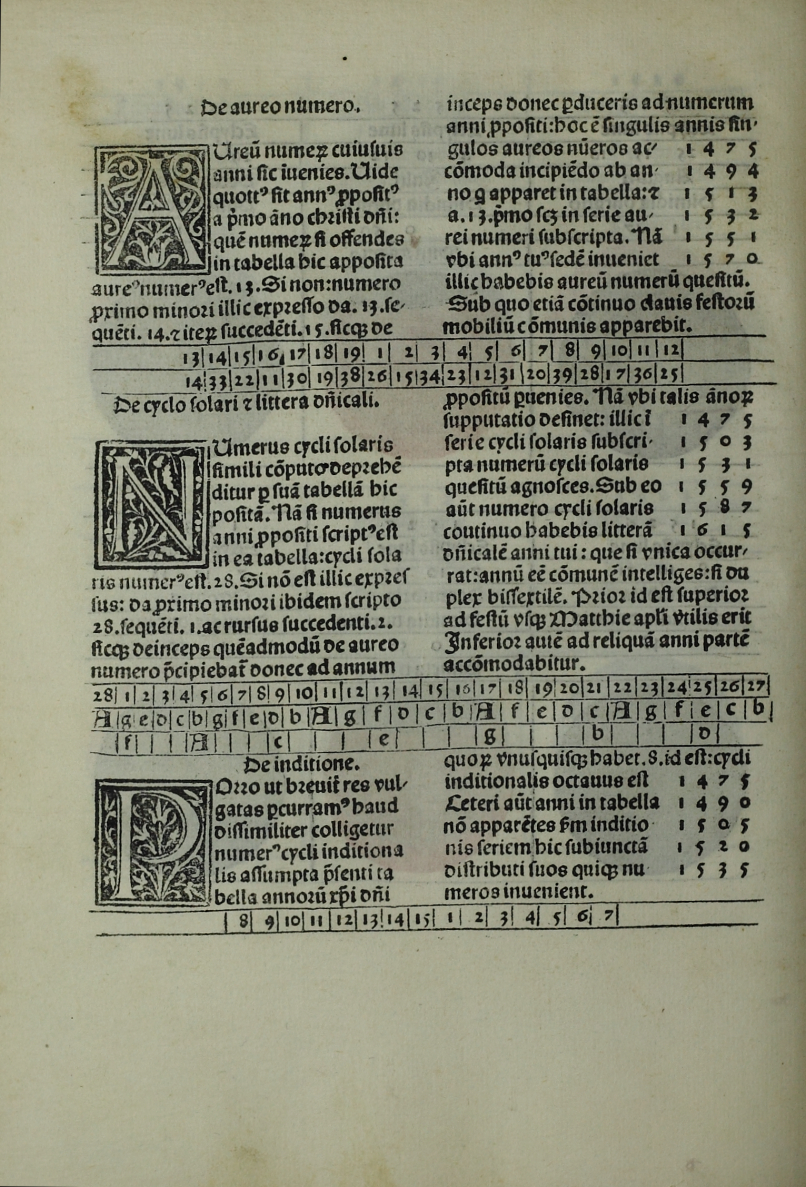 De aureo numero.
AUreū numeꝝ cuiusuis
anni sic iuenies. Uide
quotꝰ sit annꝰ ꝓpositꝰ
a pͥmo āno christi dñi:
quē numeꝝ si offendes
in tabella hic apposita
aureꝰ numerꝰ est. 13. Si non: numero
primo minori illic expresso da. 13. se-
quēti. 14. ⁊ iteꝝ succedēti. 15. sicqꝫ de
inceps donec ꝑduceris ad numerum
anni ꝓpositi: hoc ē singulis annis sin-
gulos aureos nūeros ac- 1 4 7 5
cōmoda incipiēdo ab an- 1 4 9 4
no q apparet in tabella: ⁊ 1 5 1 3
a. 13. pͥmo scꝫ in serie au- 1 5 3 2
rei numeri subscripta. Nā 1 5 5 1
vbi annꝰ tuꝰ sedē inueniet 1 5 7 0
illic habebis aureū numerū quesitū.
Sub quo etiā cōtinuo clauis festorū
mobiliū cōmunis apparebit.
13| 14| 15| 16| 17| 18| 19| 1| 2| 3| 4| 5| 6| 7| 8| 9| 10| 11| 12|
14| 33| 22| 11| 30| 19| 38| 26| 15| 34| 23| 12| 31| 20| 39| 28| 17| 36| 25|
De cyclo solari ⁊ littera dñicali.
NUmerus cycli solaris
simili cōputo deprehē
ditur ꝑ suā tabellā hic
positā. Nā si numerus
anni ꝓpositi scriptꝰ est
in ea tabella: cycli sola
ris numerꝰ est. 28. Si nō est illic expres
sus: da primo minori ibidem scripto
28. sequēti. 1. ac rursus succedenti. 2.
sicqꝫ deinceps quēadmodū de aureo
numero p̄cipiebat̄ donec ad annum
ꝓpositū ꝑuenies. Nā vbi talis ānoꝝ
supputatio desinet: illic ī 1 4 7 5
serie cycli solaris subscri- 1 5 0 3
pta numerū cycli solaris 1 5 3 1
quesitū agnosces. Sub eo 1 5 5 9
aūt numero cycli solaris 1 5 8 7
coutinuo habebis litterā 1 6 1 5
dñicalē anni tui: que si vnica occur-
rat: annū eē cōmunē intelliges: si du
plex bissextilē. Prior id est superior
ad festū vsqꝫ Matthie apl̄i vtilis erit
Inferior autē ad reliquā anni partē
accōmodabitur.
28| 1| 2| 3| 4| 5| 6| 7| 8| 9| 10| 11| 12| 13| 14| 15| 16| 17| 18| 19| 20| 21| 22| 23| 24| 25| 26| 27|
A| g| e| d| c| b| g| f| e| d| b| A| g| f| d| c| b| A| f| e| d| c| A| g| f| e| c| b|
|f| | | |A| | | |c| | | |e| | | |g| | | |b| | | |d|
De inditione.
POrro ut breuit̄ res vul-
gatas ꝑcurramꝰ haud
dissimiliter colligetur
numerꝰ cycli inditiona
lis assumpta p̄senti ta
bella annorū xp̄i dñi
quoꝝ vnusquisqꝫ habet. 8. id est: cycli
inditionalis octauus est 1 4 7 5
Ceteri aūt anni in tabella 1 4 9 0
nō apparētes s̄m inditio 1 5 0 5
nis seriem hic subiunctā 1 5 2 0
distributi suos quiqꝫ nu 1 5 3 5
meros inuenient.
| 8| 9| 10| 11| 12| 13| 14| 15| 1| 2| 3| 4| 5| 6| 7|